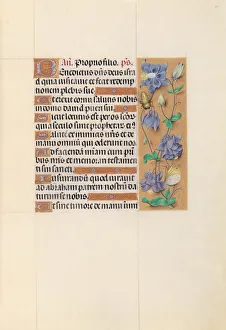 Benedictus d͞ns deus isra
el quia visitauit et fecit redemp
tionem plebis sue
Et erexit cornu salutis nobis
in domo dauid pueri sui
Sicut locutus est per os sctōꝝ
qui a seculo sunt prophetaꝝ ei9
Salutē ex inimicis nr̄is et de
manu omniū qui oderunt nos
Ad faciendā mīam cum pr̄ibus
nr̄is et memorari testamenti
sui sancti
Iusiurandū quod iurauit
ad abraham patrem nostrū da
turum se nobis
Ut sine timore de manu inimi